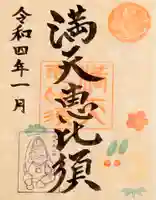 満天恵比須
令和四年一月